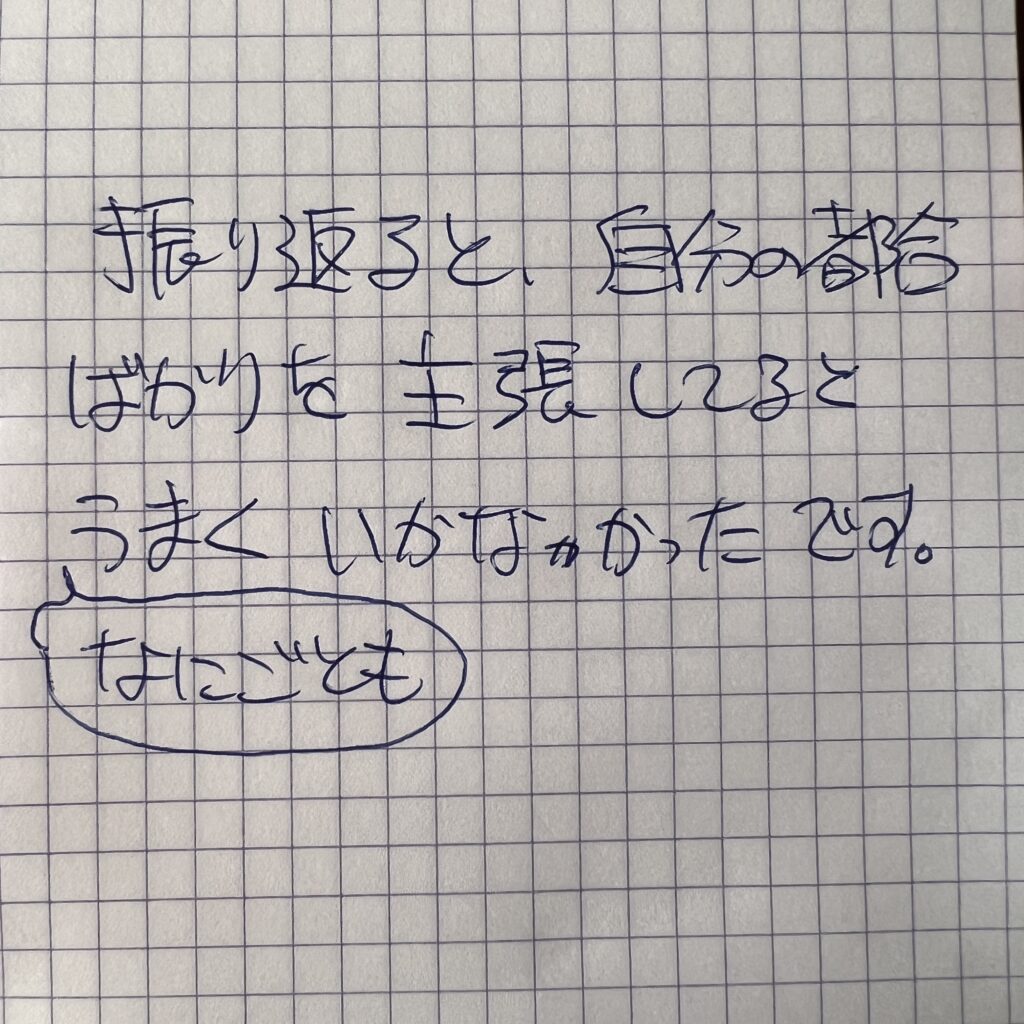 振り返ると、自分の都合
ばかりを主張してると
うまくいかなかったです。
なにごとも